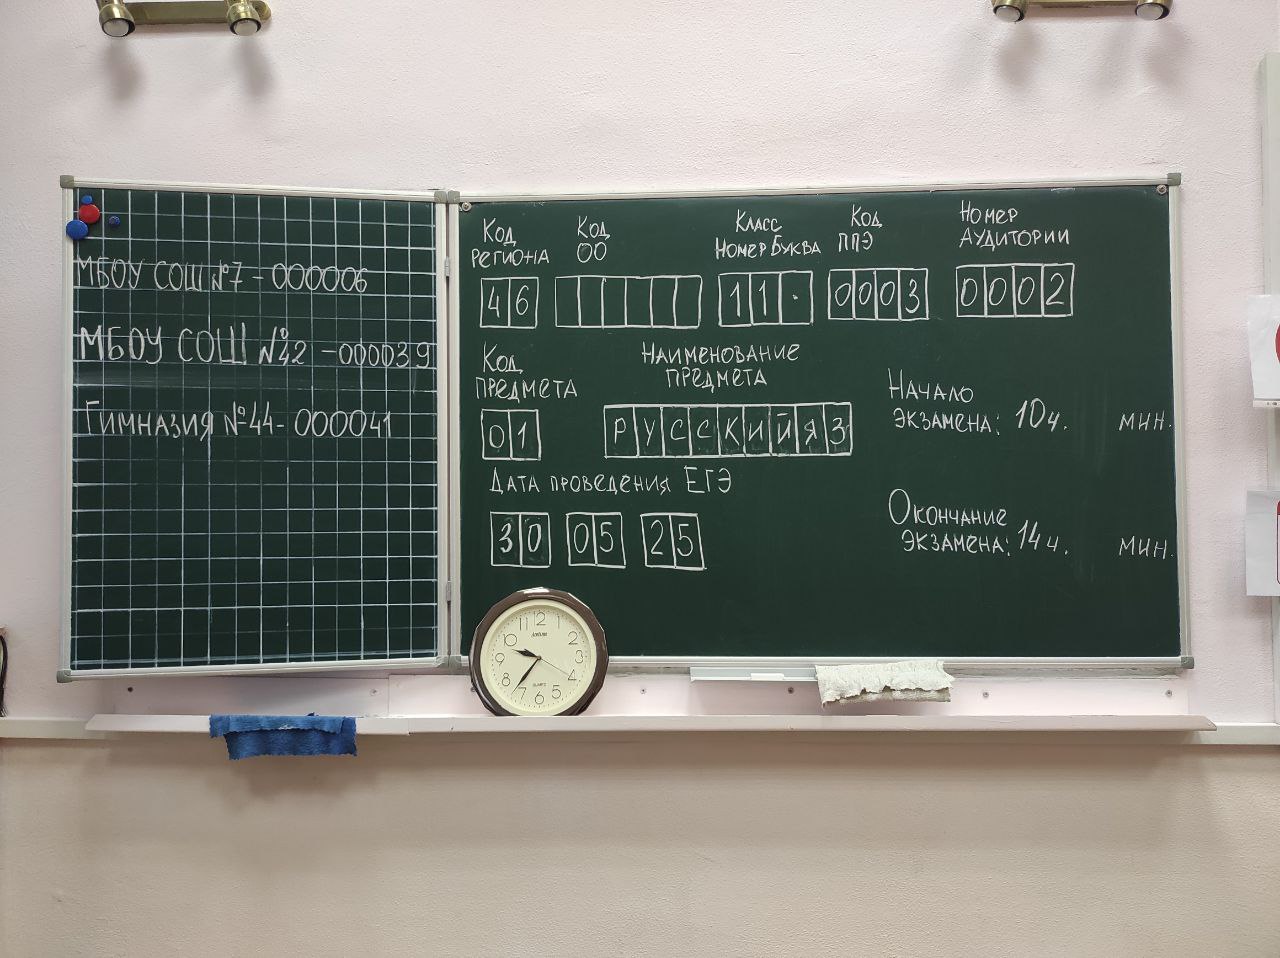 МБОУ СОШ №7 - 000006
МБОУ СОШ №42 - 000039
Гимназия №44 - 000041
Код региона
46
Код ОО
Класс
Номер Буква
11 .
Код ППЭ
0003
Номер аудитории
0002
Код предмета
01
Наименование предмета
РУССКИЙЯЗ
Дата проведения ЕГЭ
30 05 25
Начало
экзамена: 10 ч. мин.
Окончание
экзамена: 14 ч. мин.
12
2
3
4
5
6
7
8
9
10
QUARTZ